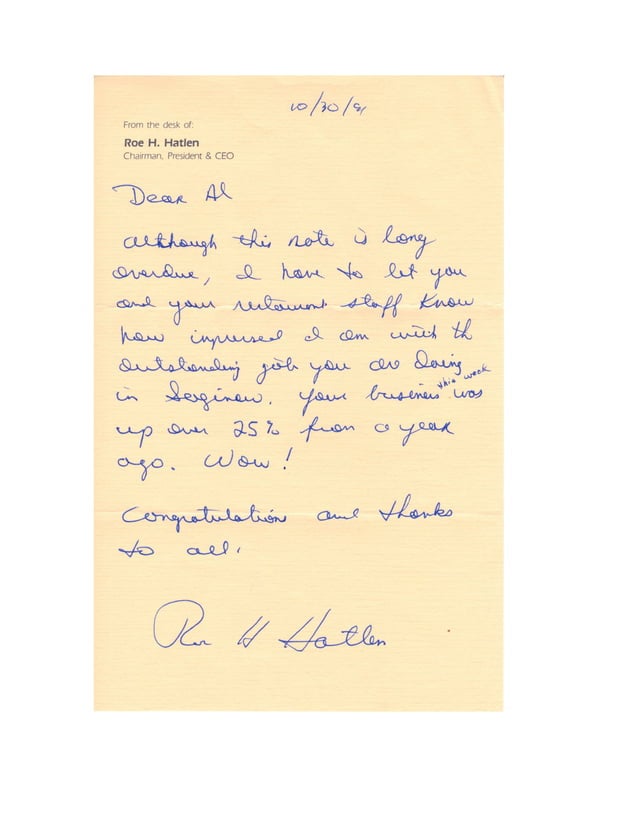 10/30/91
From the desk of:
Roe H. Hatlen
Chairman, President & CEO
Dear Al
Although this note is long
overdue, I have to let you
and your restaurant staff know
how impressed I am with th
outstanding job you are doing
in Saginaw. Your business this week was
up over 25% from a year
ago. Wow!
Congratulations and thanks
to all.
Roe H Hatlen